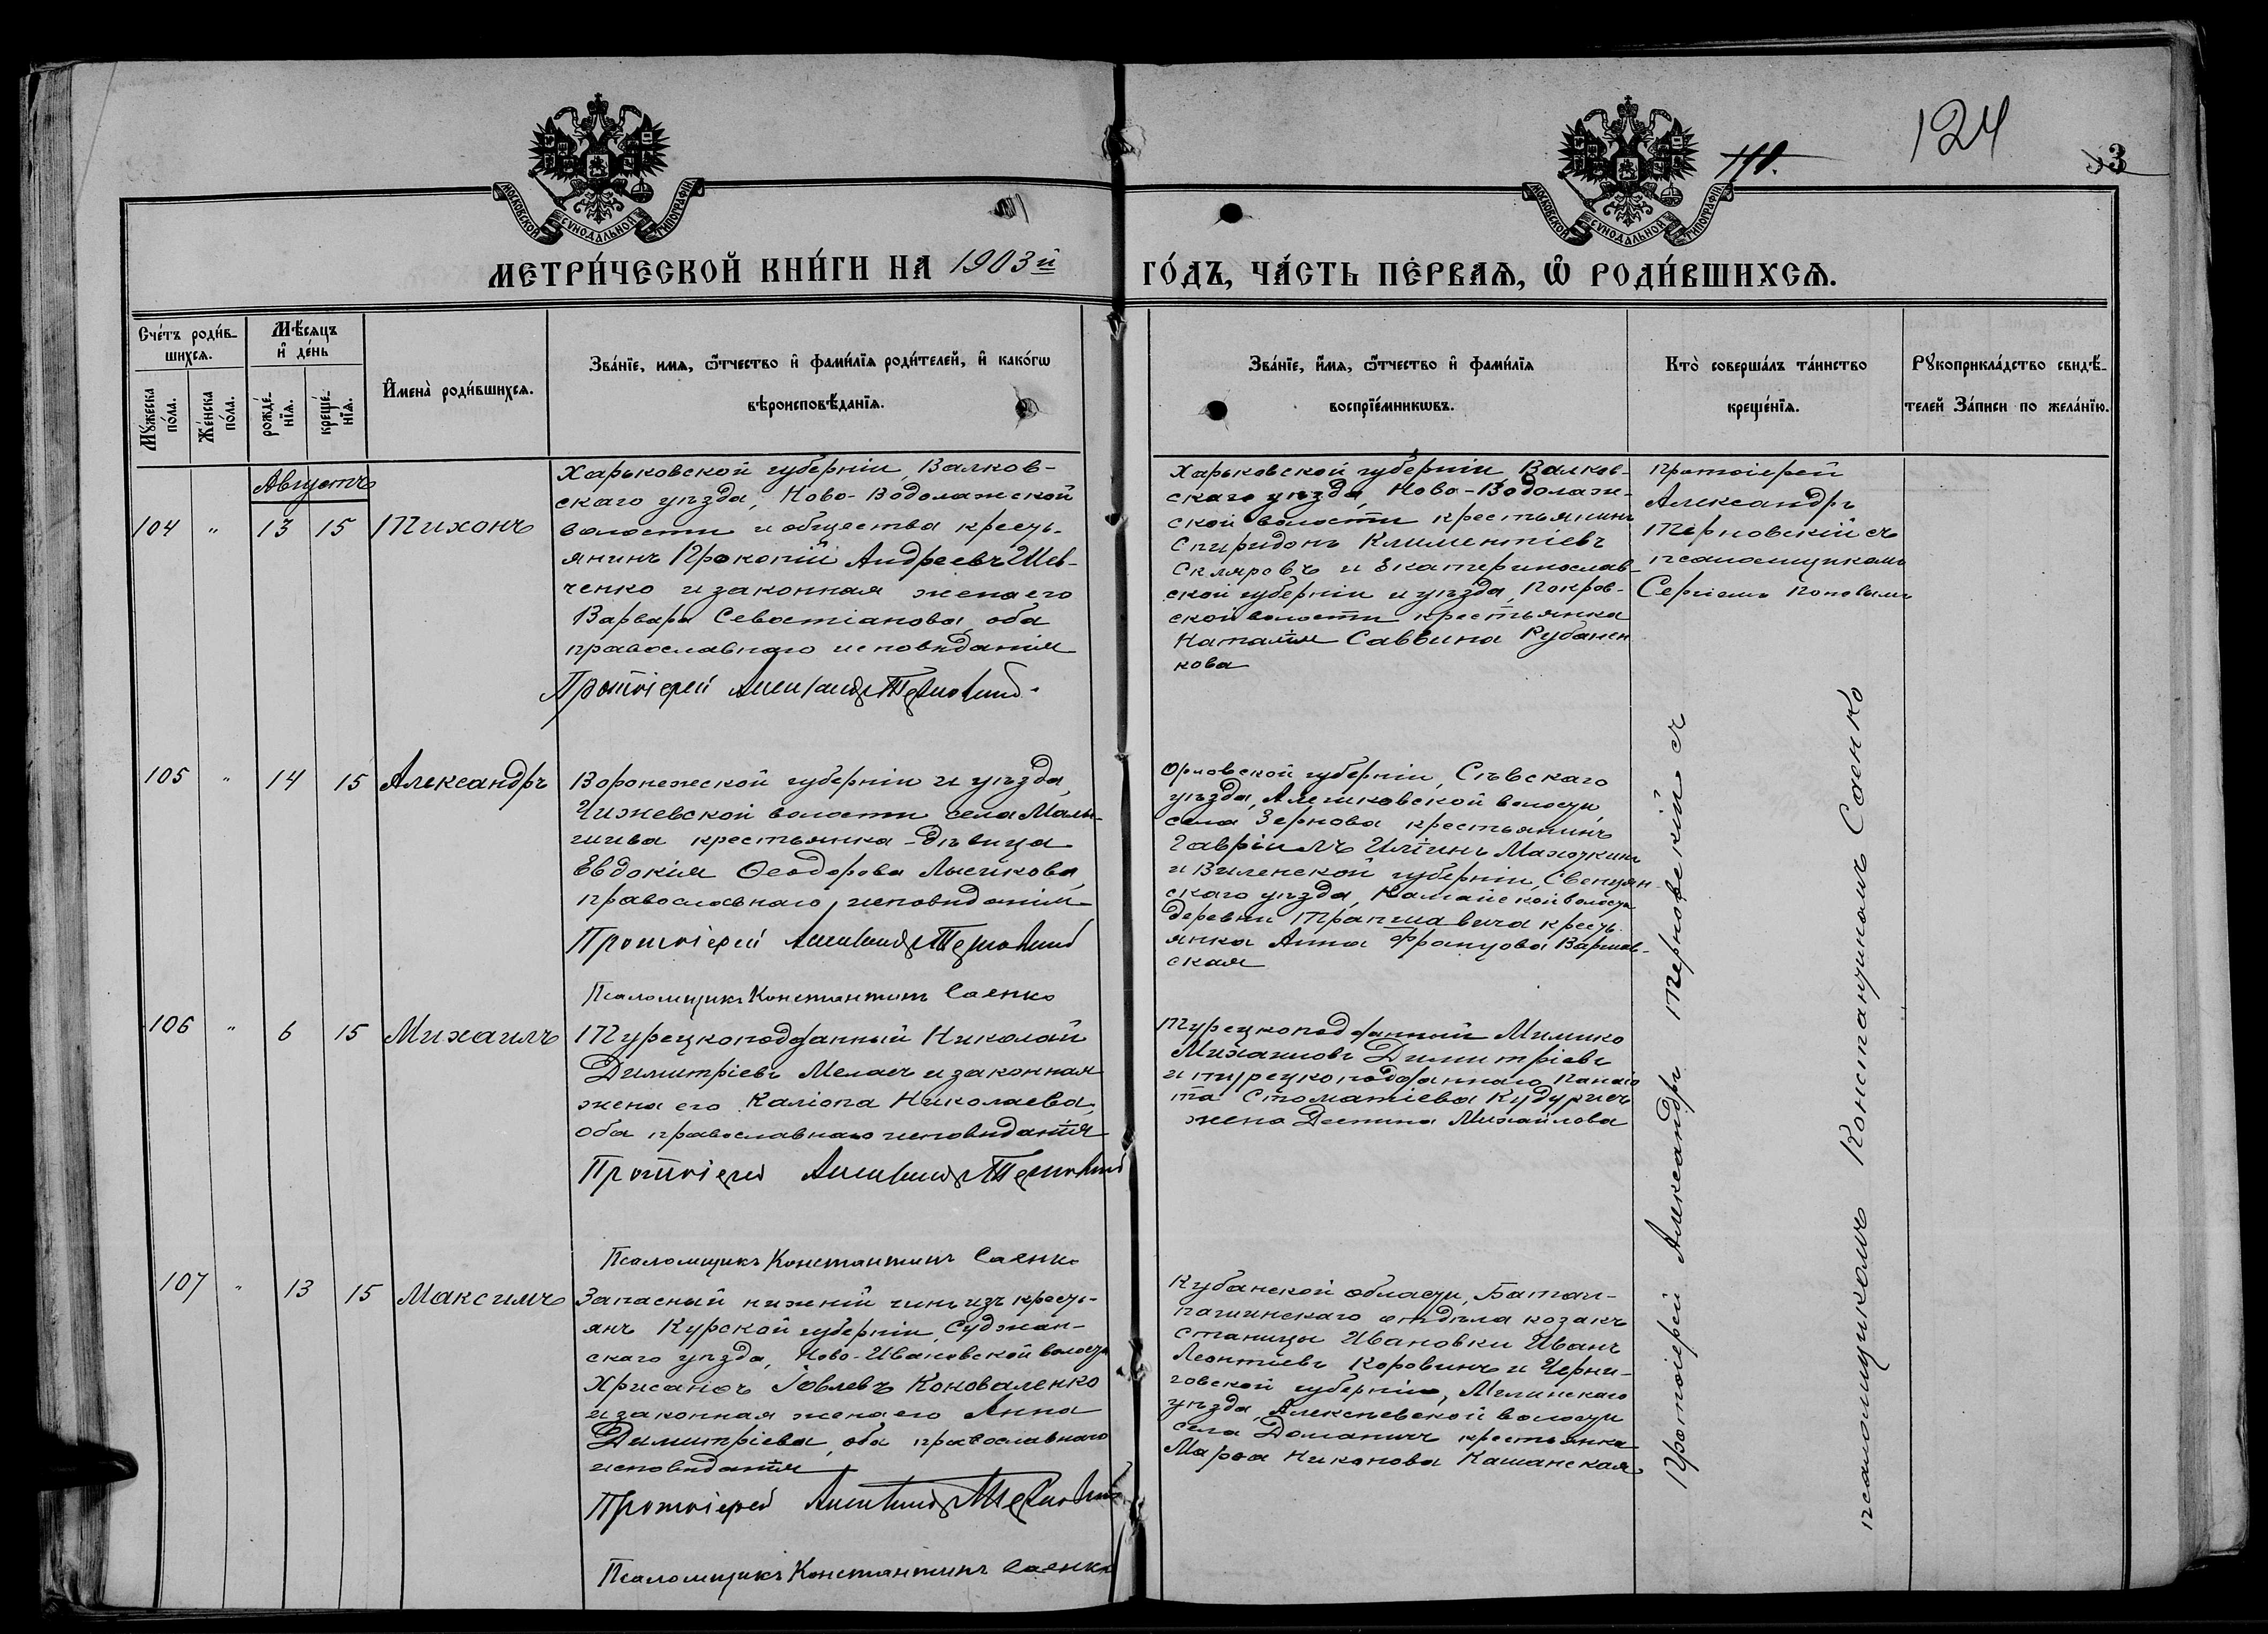 МОСКОВСКОЙ СѴНОДАЛЬНОЙ ТИПОГРАФІИ
МОСКОВСКОЙ СѴНОДАЛЬНОЙ ТИПОГРАФІИ
124
МЕТРИ́ЧЕСКОЙ КНИ́ГИ НА 1903й
ГО́ДЪ, ЧА́СТЬ ПЕ́РВАѦ, Ѡ РОДИ́ВШИХСѦ.
Сче́тъ роди́в-
шихсѧ.
Мꙋ́жеска по́ла.
Же́нска по́ла.
Мѣ́сѧцъ
и҆ де́нь
рожде́-нїѧ.
креще́-нїѧ.
И҆мена̀ роди́вшихсѧ.
Зва́нїе, имѧ, ѻ҆́тчество и҆ фами́лїѧ роди́телей, и҆ како́гѡ
вѣроисповѣ́данїѧ.
Зва́нїе, и҆́мѧ, ѻ҆́тчество и҆ фами́лїѧ
воспрїе́мникѡвъ.
Кто̀ соверша́лъ та́инство
креще́нїѧ.
Рꙋкоприкла́дство свидѣ́-
телей За́писи по жела́нїю.
Августъ
104 " 13 15 Тихонъ
Харьковской губерніи, Валков-
скаго уѣзда, Ново-Водолажской
волости и общества кресть-
янинъ Прокопій Андреевъ Шев-
ченко и законная жена его
Варвара Севастіанова, оба
православнаго исповѣданія
Протоіерей Александръ Терновскій.
Харьковской губерніи Валков-
скаго уѣзда, Ново-Водолаж-
ской волости крестьянинъ
Спиридонъ Климентіевъ
Скляровъ и Екатеринослав-
ской губерніи и уѣзда, Покров-
ской волости крестьянка
Наталія Саввина Рубанен
кова
Протоіерей
Александръ
Терновскій съ
псаломщикомъ
Сергіемъ Поповымъ
105 " 14 15 Александръ
Воронежской губерніи и уѣзда,
Чижевской волости села Малы-
шива крестьянка-дѣвица
Евдокія Ѳеодорова Лысикова,
православнаго исповѣданія
Протоіерей Александръ Терновскій
Псаломщикъ Константинъ Саенко
Орловской губерніи, Сѣвскаго
уѣзда, Алешковской волости,
села Зернова крестьянинъ
Гавріилъ Иліинъ Махоткинъ
и Виленской губерніи, Свенцян-
скаго уѣзда, Камайской волости
деревни Трапшавича кресть-
янка Анна Францова Варшав-
ская
106 " 6 15 Михаилъ
Турецкоподданный Николай
Димитріевъ Меласъ и законная
жена его Каліопа Николаева,
оба православнаго исповѣданія
Протоіерей Александръ Терновскій
Псаломщикъ Константинъ Саенко
Турецкоподданный Милико
Михаиловъ Димитріевъ
и турецкоподданнаго Панаіо
та Стоматіева Кудурисъ
жена Деспина Михайлова
107 " 13 15 Максимъ
Запасный нижній чинъ изъ кресть-
янъ Курской губерніи, Суджан-
скаго уѣзда, Ново-Ивановской волости
Хрисанѳъ Іовлевъ Коноваленко
и законная жена его Анна
Димитріева, оба православнаго
исповѣданія
Протоіерей Александръ Терновскій
Псаломщикъ Константинъ Саенко
Кубанской области, Батал-
пашинскаго отдѣла козакъ
станицы Ивановки Иванъ
Леонтіевъ Коровинъ и Черни-
говской губерніи, Мглинскаго
уѣзда, Алексѣевской волости
села Доманичъ крестьянка
Марѳа Никонова Кашанская
Протоіерей Александръ Терновскій съ
псаломщикомъ Константиномъ Саенко